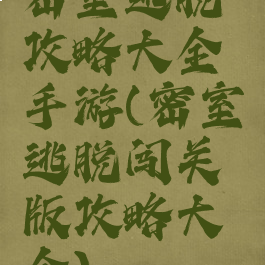 密室逃脱
攻略大全
手游(密室
逃脱闯关
版攻略大
全)